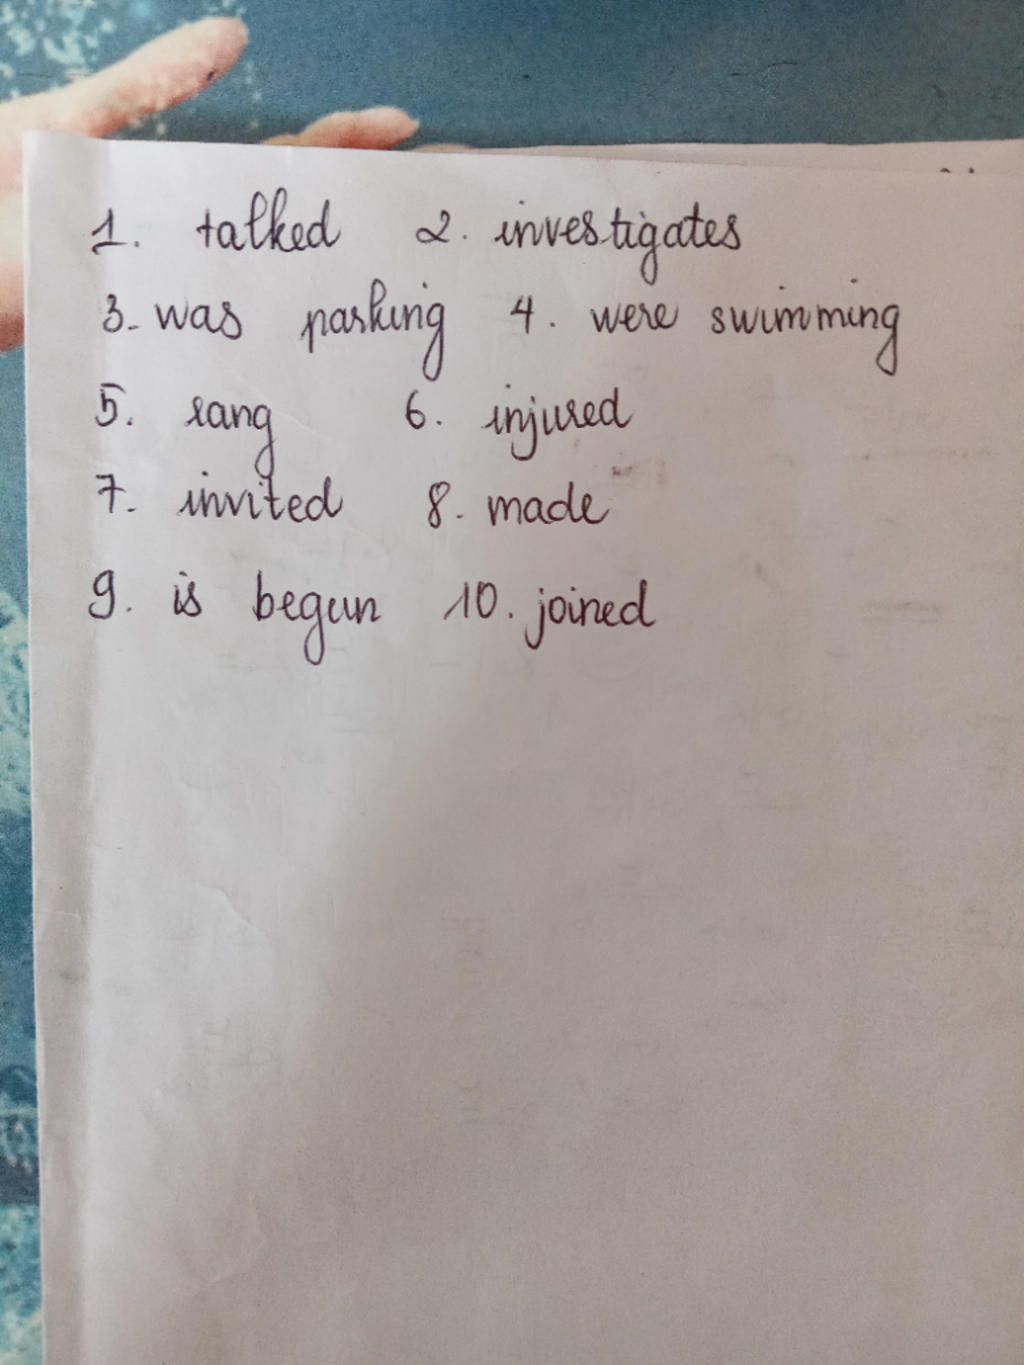 1. talked 2. investigates
3. was parking 4. were swimming
5. rang 6. injured
7. invited 8. made
9. is begun 10. joined